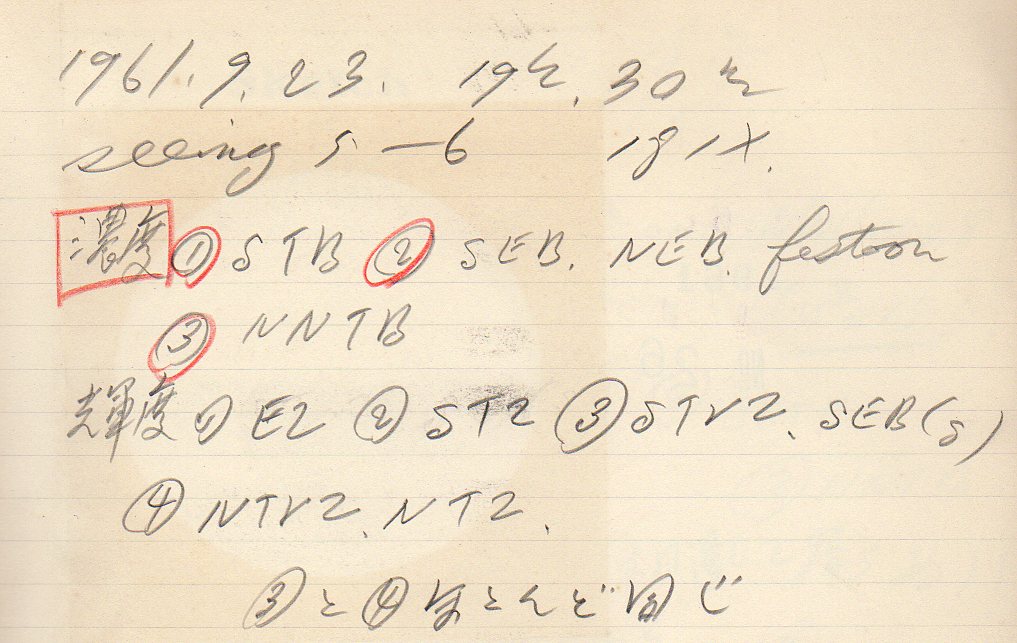 1961. 9. 23. 19h. 30m
seeing 5—6 181X.
濃度 ① STB ② SEB. NEB. festoon
③ NNTB
輝度 ① EZ ② STZ ③ STrZ. SEB(s)
④ NTrZ. NTZ.
③と④ほとんど同じ